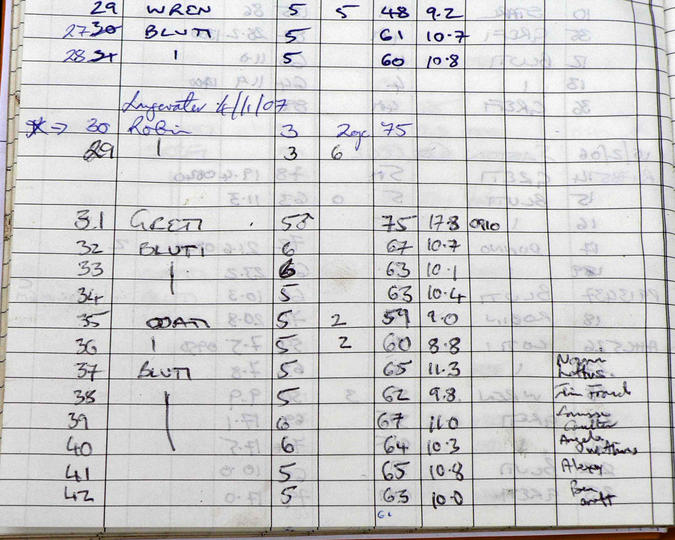 29 WREN 5 5 48 9.2
2730 BLUTI 5 61 10.7
28 31 ı 5 60 10.8
Lingewater 4/1/07
* ⇒ 30 Robin 3 75
29 ı 3 6
31 GRETI . 5♂ 75 17.8 0910
32 BLUTI 6 67 10.7
33 6 63 10.1
34 5 63 10.4
35 COATI 5 2 59 9.0
36 ı 5 2 60 8.8
37 BLUTI 5 65 11.3
38 5 62 9.8
39 6 67 11.0
40 6 64 10.3 Angela
41 5 65 10.8
42 5 63 10.0 Ben